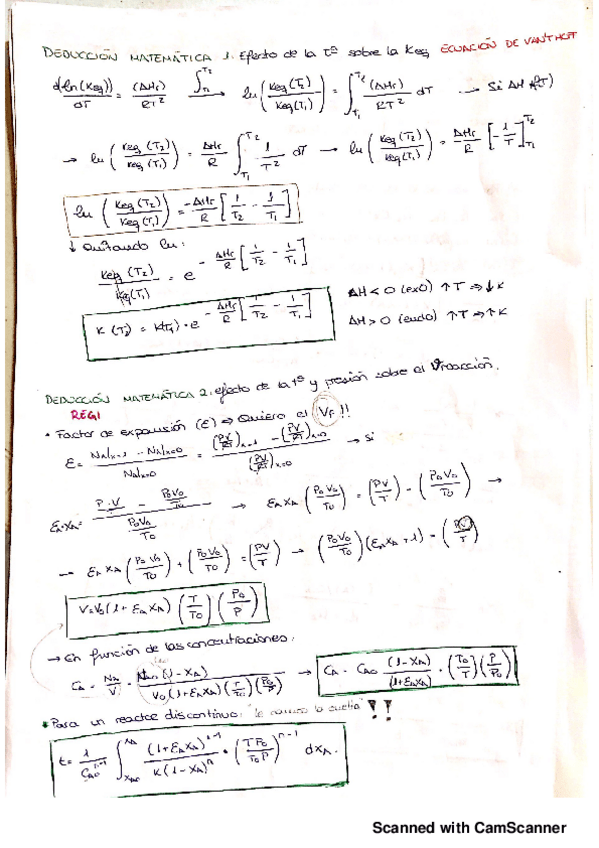 DEDUCCIÓN MATEMÁTICA 1. Efecto de la Tª sobre la Keq ECUACIÓN DE VANTHOFF
d(ln(Keq))/dT = (ΔHr)/RT² ∫_T1^T2 → ln(Keq(T2)/Keq(T1)) = ∫_T1^T2 (ΔHr)/RT² dT → Si ΔH f(T)
→ ln(Keq(T2)/Keq(T1)) = ΔHr/R ∫_T1^T2 1/T² dT → ln(Keq(T2)/Keq(T1)) = ΔHr/R [-1/T]_T1^T2
ln(Keq(T2)/Keq(T1)) = -ΔHr/R [1/T2 - 1/T1]
↓ Quitando ln:
Keq(T2)/Keq(T1) = e^(-ΔHr/R [1/T2 - 1/T1])
ΔH < 0 (exo) ↑T ⇒ ↓K
K(T2) = K(T1)·e^(-ΔHr/R [1/T2 - 1/T1])
ΔH > 0 (endo) ↑T ⇒ ↑K
DEDUCCIÓN MATEMÁTICA 2: efecto de la Tª y presión sobre el Vreacción.
REG1
• Factor de expansión (ε) ⇒ Quiero el VF!!
ε = (NA|x=1 - NA|x=0)/NA|x=0 = ((PV/RT)x=1 - (PV/RT)x=0)/(PV/RT)x=0 → si
εA·XA = (P·V/T - P0V0/T0)/(P0V0/T0) → εA XA (P0V0/T0) = (PV/T) - (P0V0/T0) →
→ εA XA (P0V0/T0) + (P0V0/T0) = (PV/T) → (P0V0/T0)(εA XA + 1) = (PV/T)
V = V0(1 + εA XA)(T/T0)(P0/P)
→ En función de las concentraciones:
CA = NA/V = NA0(1 - XA)/(V0(1 + εA XA)(T/T0)(P0/P)) → CA = CA0 (1 - XA)/(1 + εA XA) · (T0/T)(P/P0)
* Para un reactor discontinuo: !!
t = 1/CA0^(n-1) ∫_XA0^XA (1 + εA XA)^(n-1)/(K(1 - XA)^n) · (TP0/T0P)^(n-1) dXA.
Scanned with CamScanner